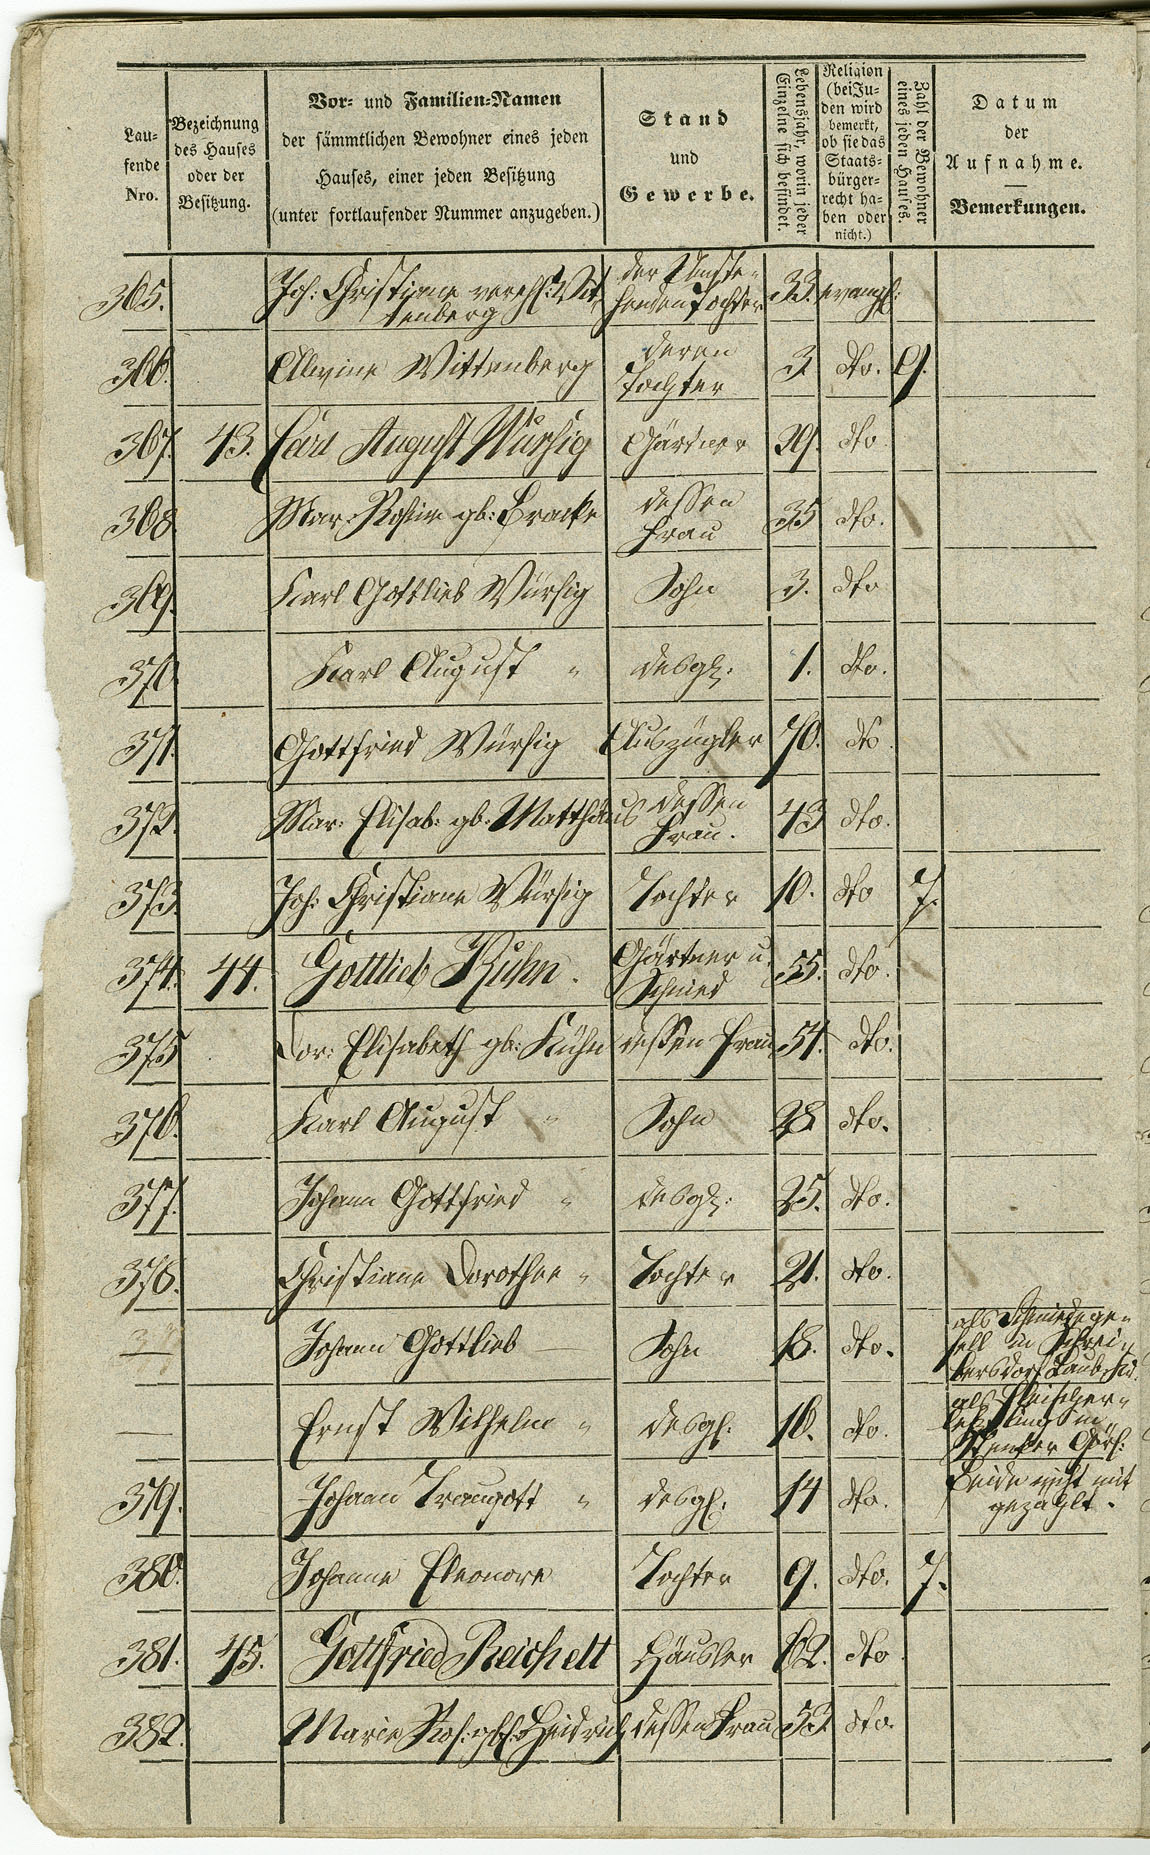 Lau-
fende
Nro.
Bezeichnung
des Hauses
oder der
Besitzung.
Vor- und Familien-Namen
der sämmtlichen Bewohner eines jeden
Hauses, einer jeden Besitzung
(unter fortlaufender Nummer anzugeben.)
Stand
und
Gewerbe.
Lebensjahr, worin jeder
Einzelne sich befindet.
Religion
(bei Ju-
den wird
bemerkt,
ob sie das
Staats-
bürger-
recht ha-
ben oder
nicht.)
Zahl der Bewohner
eines jeden Hauses.
Datum
der
Aufnahme.
Bemerkungen.
365. Joh: Christiane verehl: Wit- der Umste- 33. evangl:
tenberg henden Tochter
366. Alwine Wittenberg deren Tochter 3. dto. 9.
367. 43. Carl August Würsig Gärtner 39. dto
368. Mar. Rosine gb: Bracke dessen Frau 35 dto.
369. Karl Gottlieb Würsig Sohn 3. dto
370. Karl August " desgl: 1. dto.
371. Gottfried Würsig Auszügler 70. dto.
372. Mar: Elisab: gb. Matthäus dessen Frau. 43 dto.
373. Joh: Christiane Würsig Tochter 10. dto 7.
374. 44. Gottlieb Kühn. Gärtner u. Schmied 55. dto.
375 Dor: Elisabeth gb: Kühn dessen Frau 51. dto.
376. Karl August " Sohn 28. dto.
377. Johann Gottfried " desgl: 25. dto.
378. Christiane Dorothee " Tochter 21. dto.
— Johann Gottlieb — Sohn 18. dto.
als Schmiedege-
sell in Schrei-
bersdorf
— Ernst Wilhelm " desgl: 16. dto.
als Fleischer-
lehrling in
Görl:
379. Johann Traugott " desgl. 14 dto.
Beide nicht mit
gezählt.
380. Johanne Eleonore Tochter 9. dto. 7.
381. 45. Gottfried Reichelt Häusler 62. dto
382. Marie Ros: gb: Heidrich dessen Frau 53 dto.